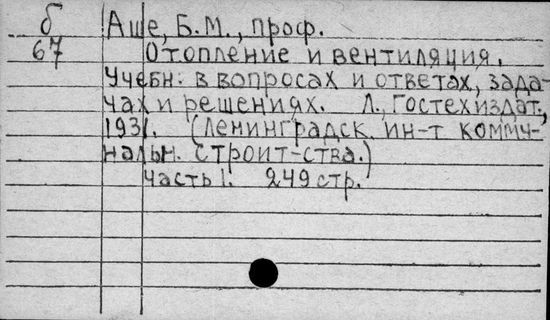 б Аше, Б.М., проф.
67 Отопление и вентиляция.
Учебн: в вопросах и ответах, зада-
чах и решениях. Л., Гостехиздат.,
1931. (Ленинградск. ин-т комму-
нальн. строит-ства.)
часть 1. 249 стр.